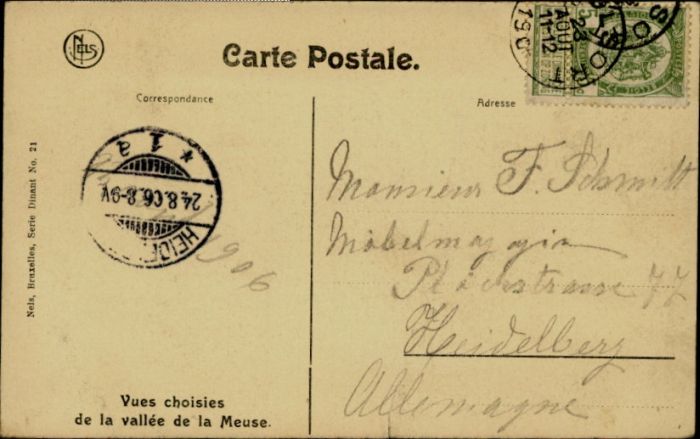 NELS
Carte Postale.
Correspondance
Adresse
23
AOUT
11-12
190
* 1 a
24.8.06.8-9V
HEIDE
1906
Monsieur F. Schmitt
Möbelmagazin
Plöckstrasse 77
Heidelberg
Allemagne
Nels, Bruxelles, Serie Dinant No. 21
Vues choisies
de la vallée de la Meuse.